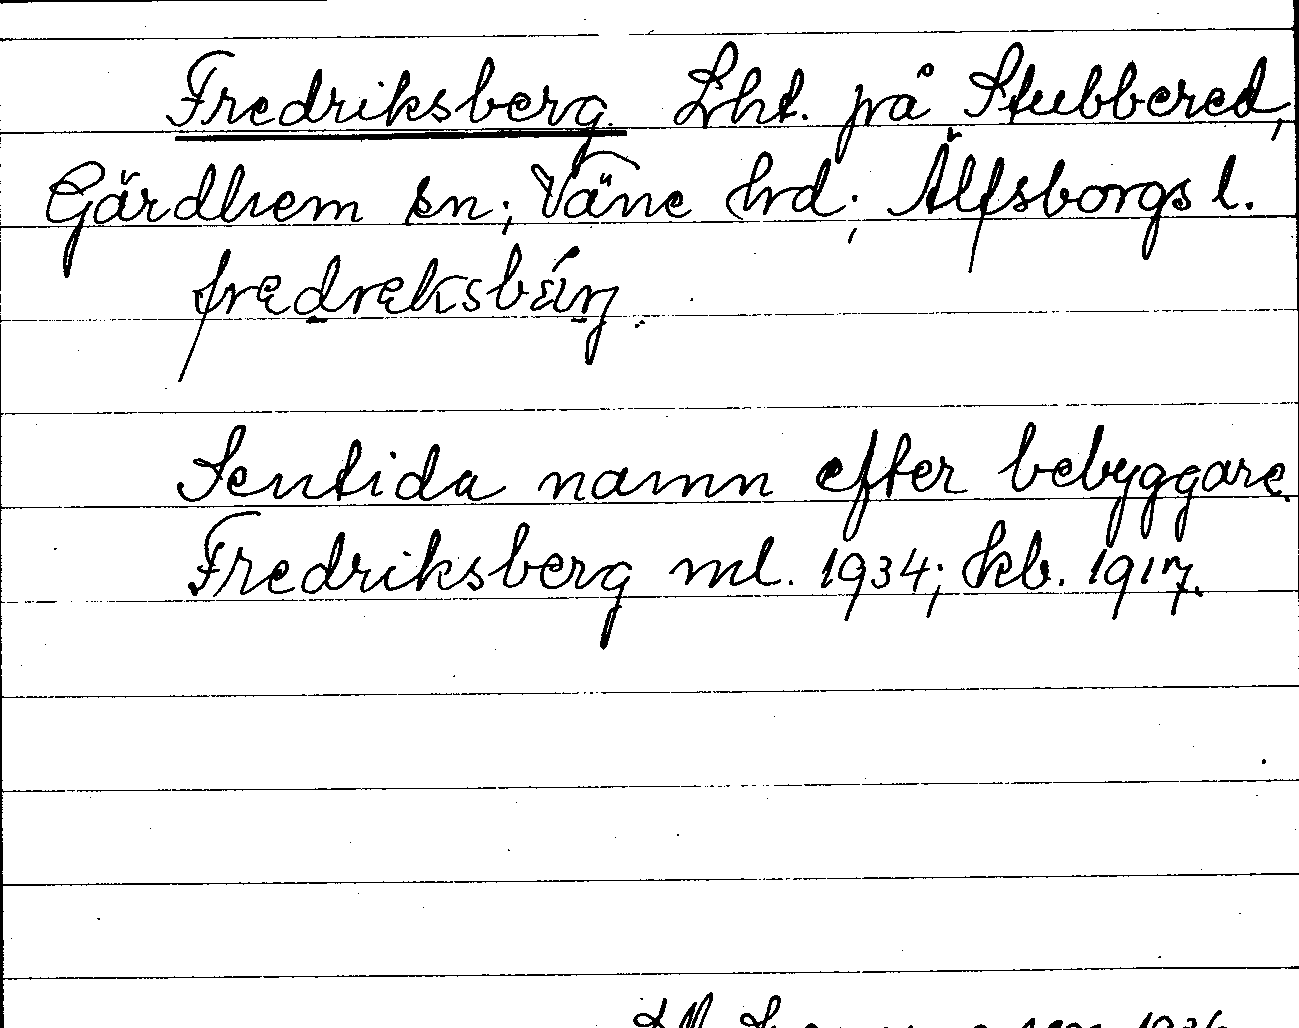 Fredriksberg. Lht. på Stubbered,
Gärdhem sn; Väne hrd; Älfsborgs l.
fredreksbärj.
Sentida namn efter bebyggare.
Fredriksberg ml. 1934; kb. 1917.